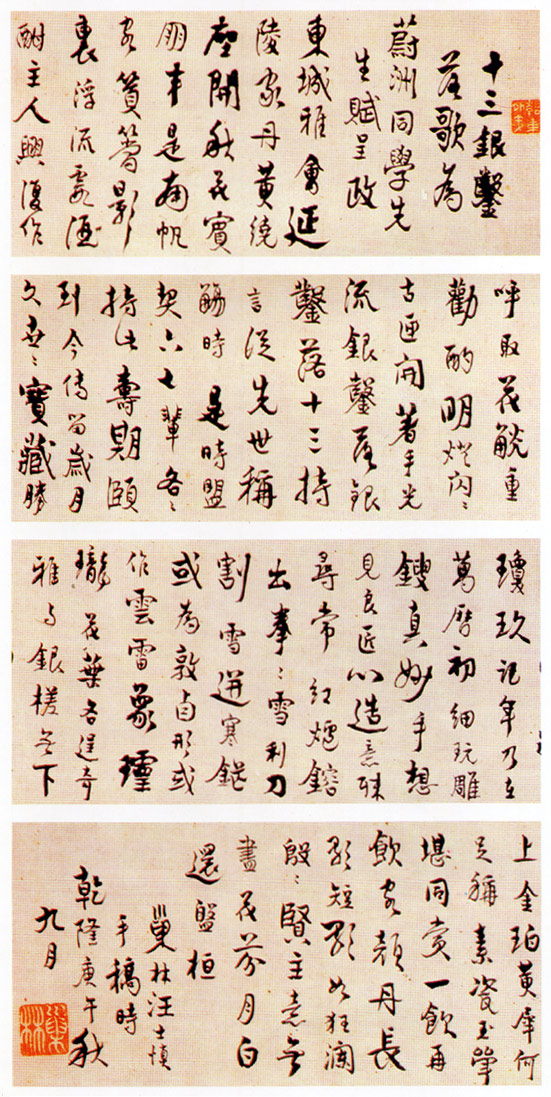 十三銀鑿
落歌為
蔚洲同學先
生賦呈政
東城雅會延
陵家丹黃繞
座開秋花賓
朋半是南帆
客簪影
裏浮流霞酒
酣主人興復作
呼取花觥重
勸酌明燈閃〻
古匣開著手光
流銀鑿落銀
鑿落十三持
言從先世稱
觴時是時盟
契六七輩各〻
持此壽期頤
到今傳留歲月
久世〻寶藏勝
瓊玖記年乃在
萬曆初細玩雕
鎪真妙手想
見良匠心造意殊
尋常紅爐鎔
出拳〻雪利刀
割雪迸寒鋩
或為敦卣形或
作雲雷象
瓏花葉各逞奇
雅與銀槎無下
上金珀黃犀何
足稱素瓷玉斝
堪同賞一飲再
飲客顏丹長
歌短歌如狂瀾
殷〻賢主意無
盡花芬月白
還盤桓
巢林汪士慎
手稿時
乾隆庚午秋
九月
巢林